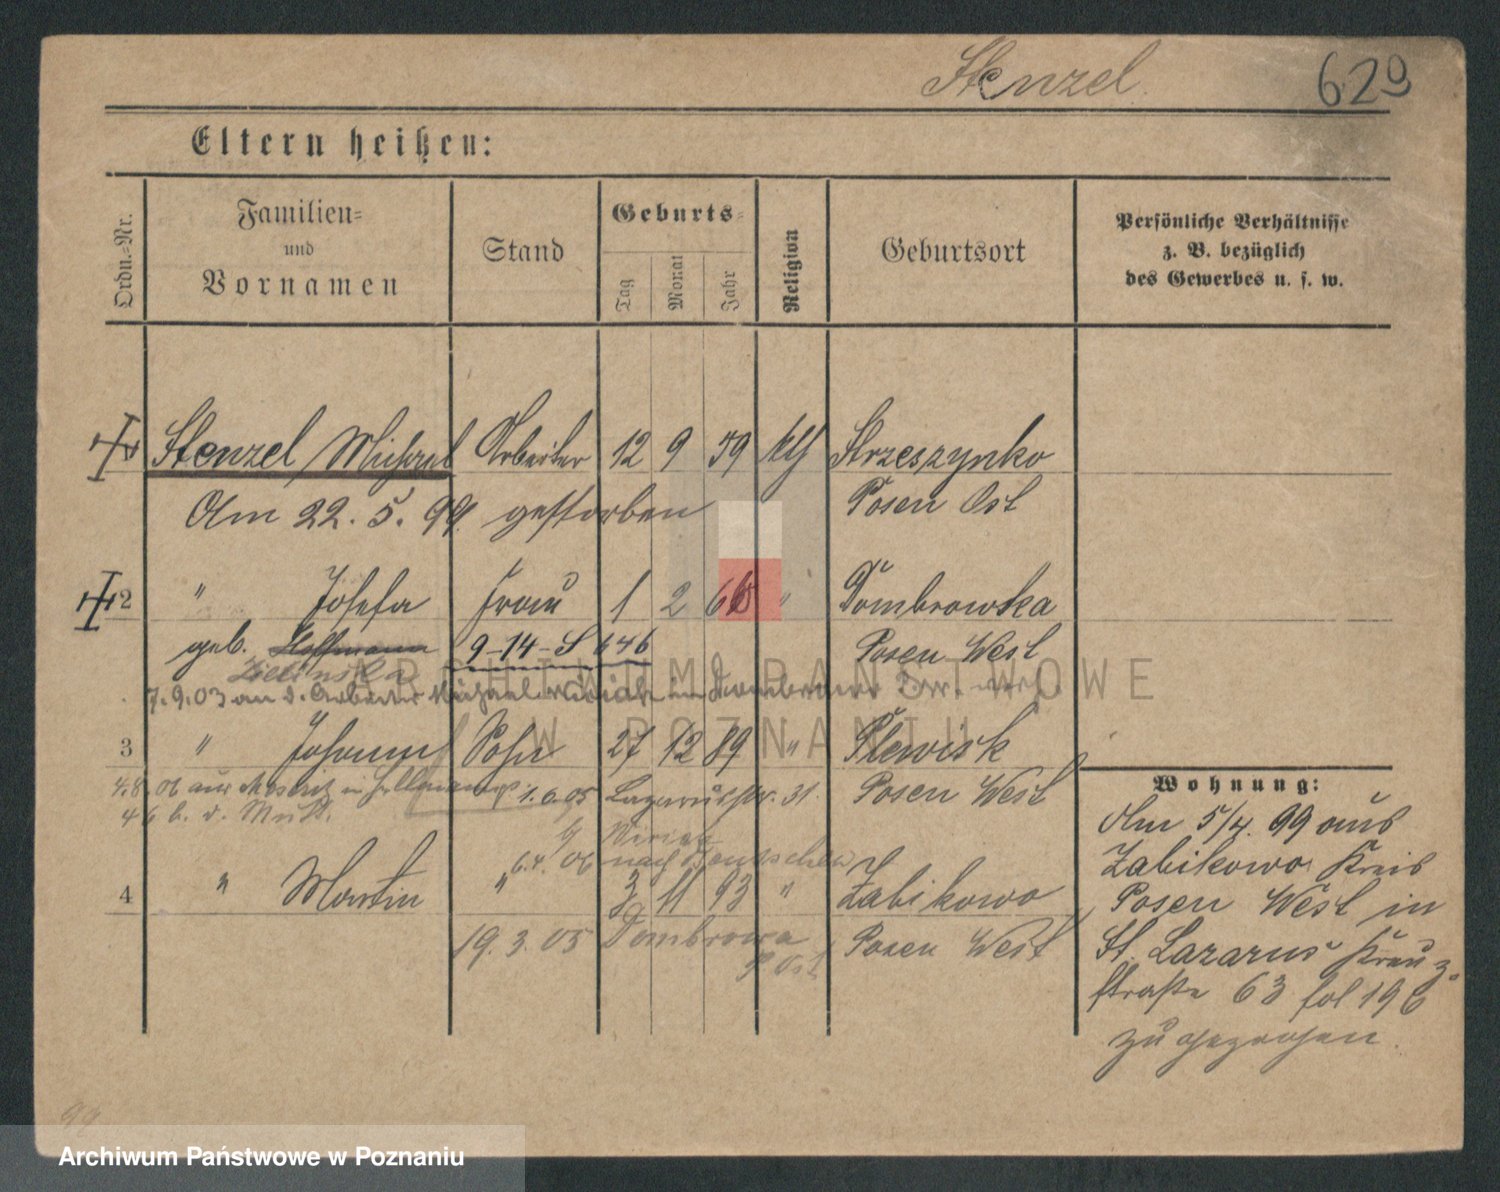 Stenzel 629
Eltern heißen:
Ordn.=Nr.
Familien=
und
Vornamen
Stand
Geburts=
Tag
Monat
Jahr
Religion
Geburtsort
Persönliche Verhältnisse
z. B. bezüglich
des Gewerbes u. s. w.
Stenzel Michael Arbeiter 12 9 59 kth Strzeszynko
Am 22. 5. 99 gestorben Posen Ost
2 " Josefa Frau 1 2 66 " Dombrowka
geb. Hoffmann 9-14-S 646 Posen West
Zielinska
7.9.03 an d. Arbeiter Michael in
3 " Johann Sohn 27 12 89 " Plewisk
4.8.06 aus in 1.6.05 Lazarusstr. 31. Posen West
6.4.06 nach
4 " Martin " 3 11 93 " Zabikowo
19.3.05 Dombrowa Posen West
P Ost
Wohnung:
Am 5/4. 99 aus
Zabikowo Kreis
Posen West in
St. Lazarus Kreuz-
straße 63 fol 196
zugezogen.
99
ARCHIWUM PAŃSTWOWE
W POZNANIU
Archiwum Państwowe w Poznaniu